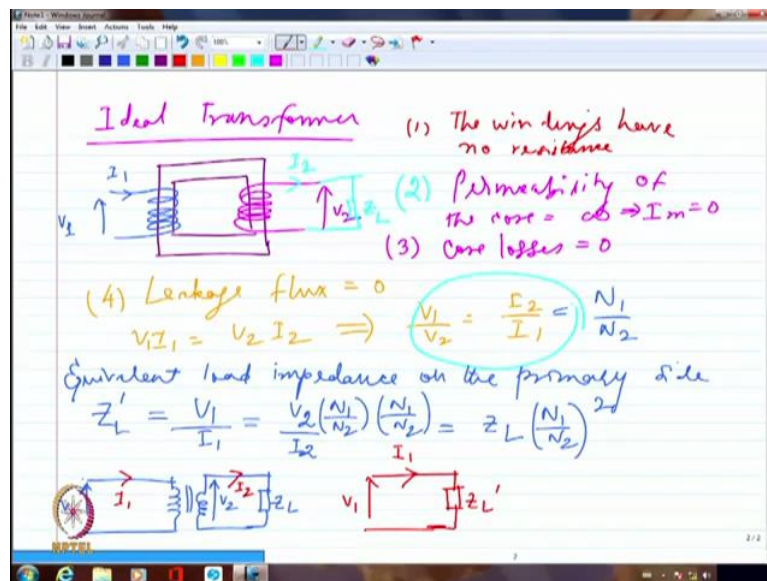 Note1 - Windows Journal
File Edit View Insert Actions Tools Help
100%
B I
Ideal Transformer
(1) The windings have
no resistance
I1 I2
V1 V2 ZL
(2) Permeability of
the core = ∞ ⇒ Im = 0
(3) Core losses = 0
(4) Leakage flux = 0
V1I1 = V2 I2 ⇒ V1/V2 = I2/I1 = N1/N2
Equivalent load impedance on the primary side
ZL' = V1/I1 = V2/I2 (N1/N2) (N1/N2) = ZL (N1/N2)^2
I1 V2 I2 ZL
V1 I1 ZL'
NPTEL
2/2